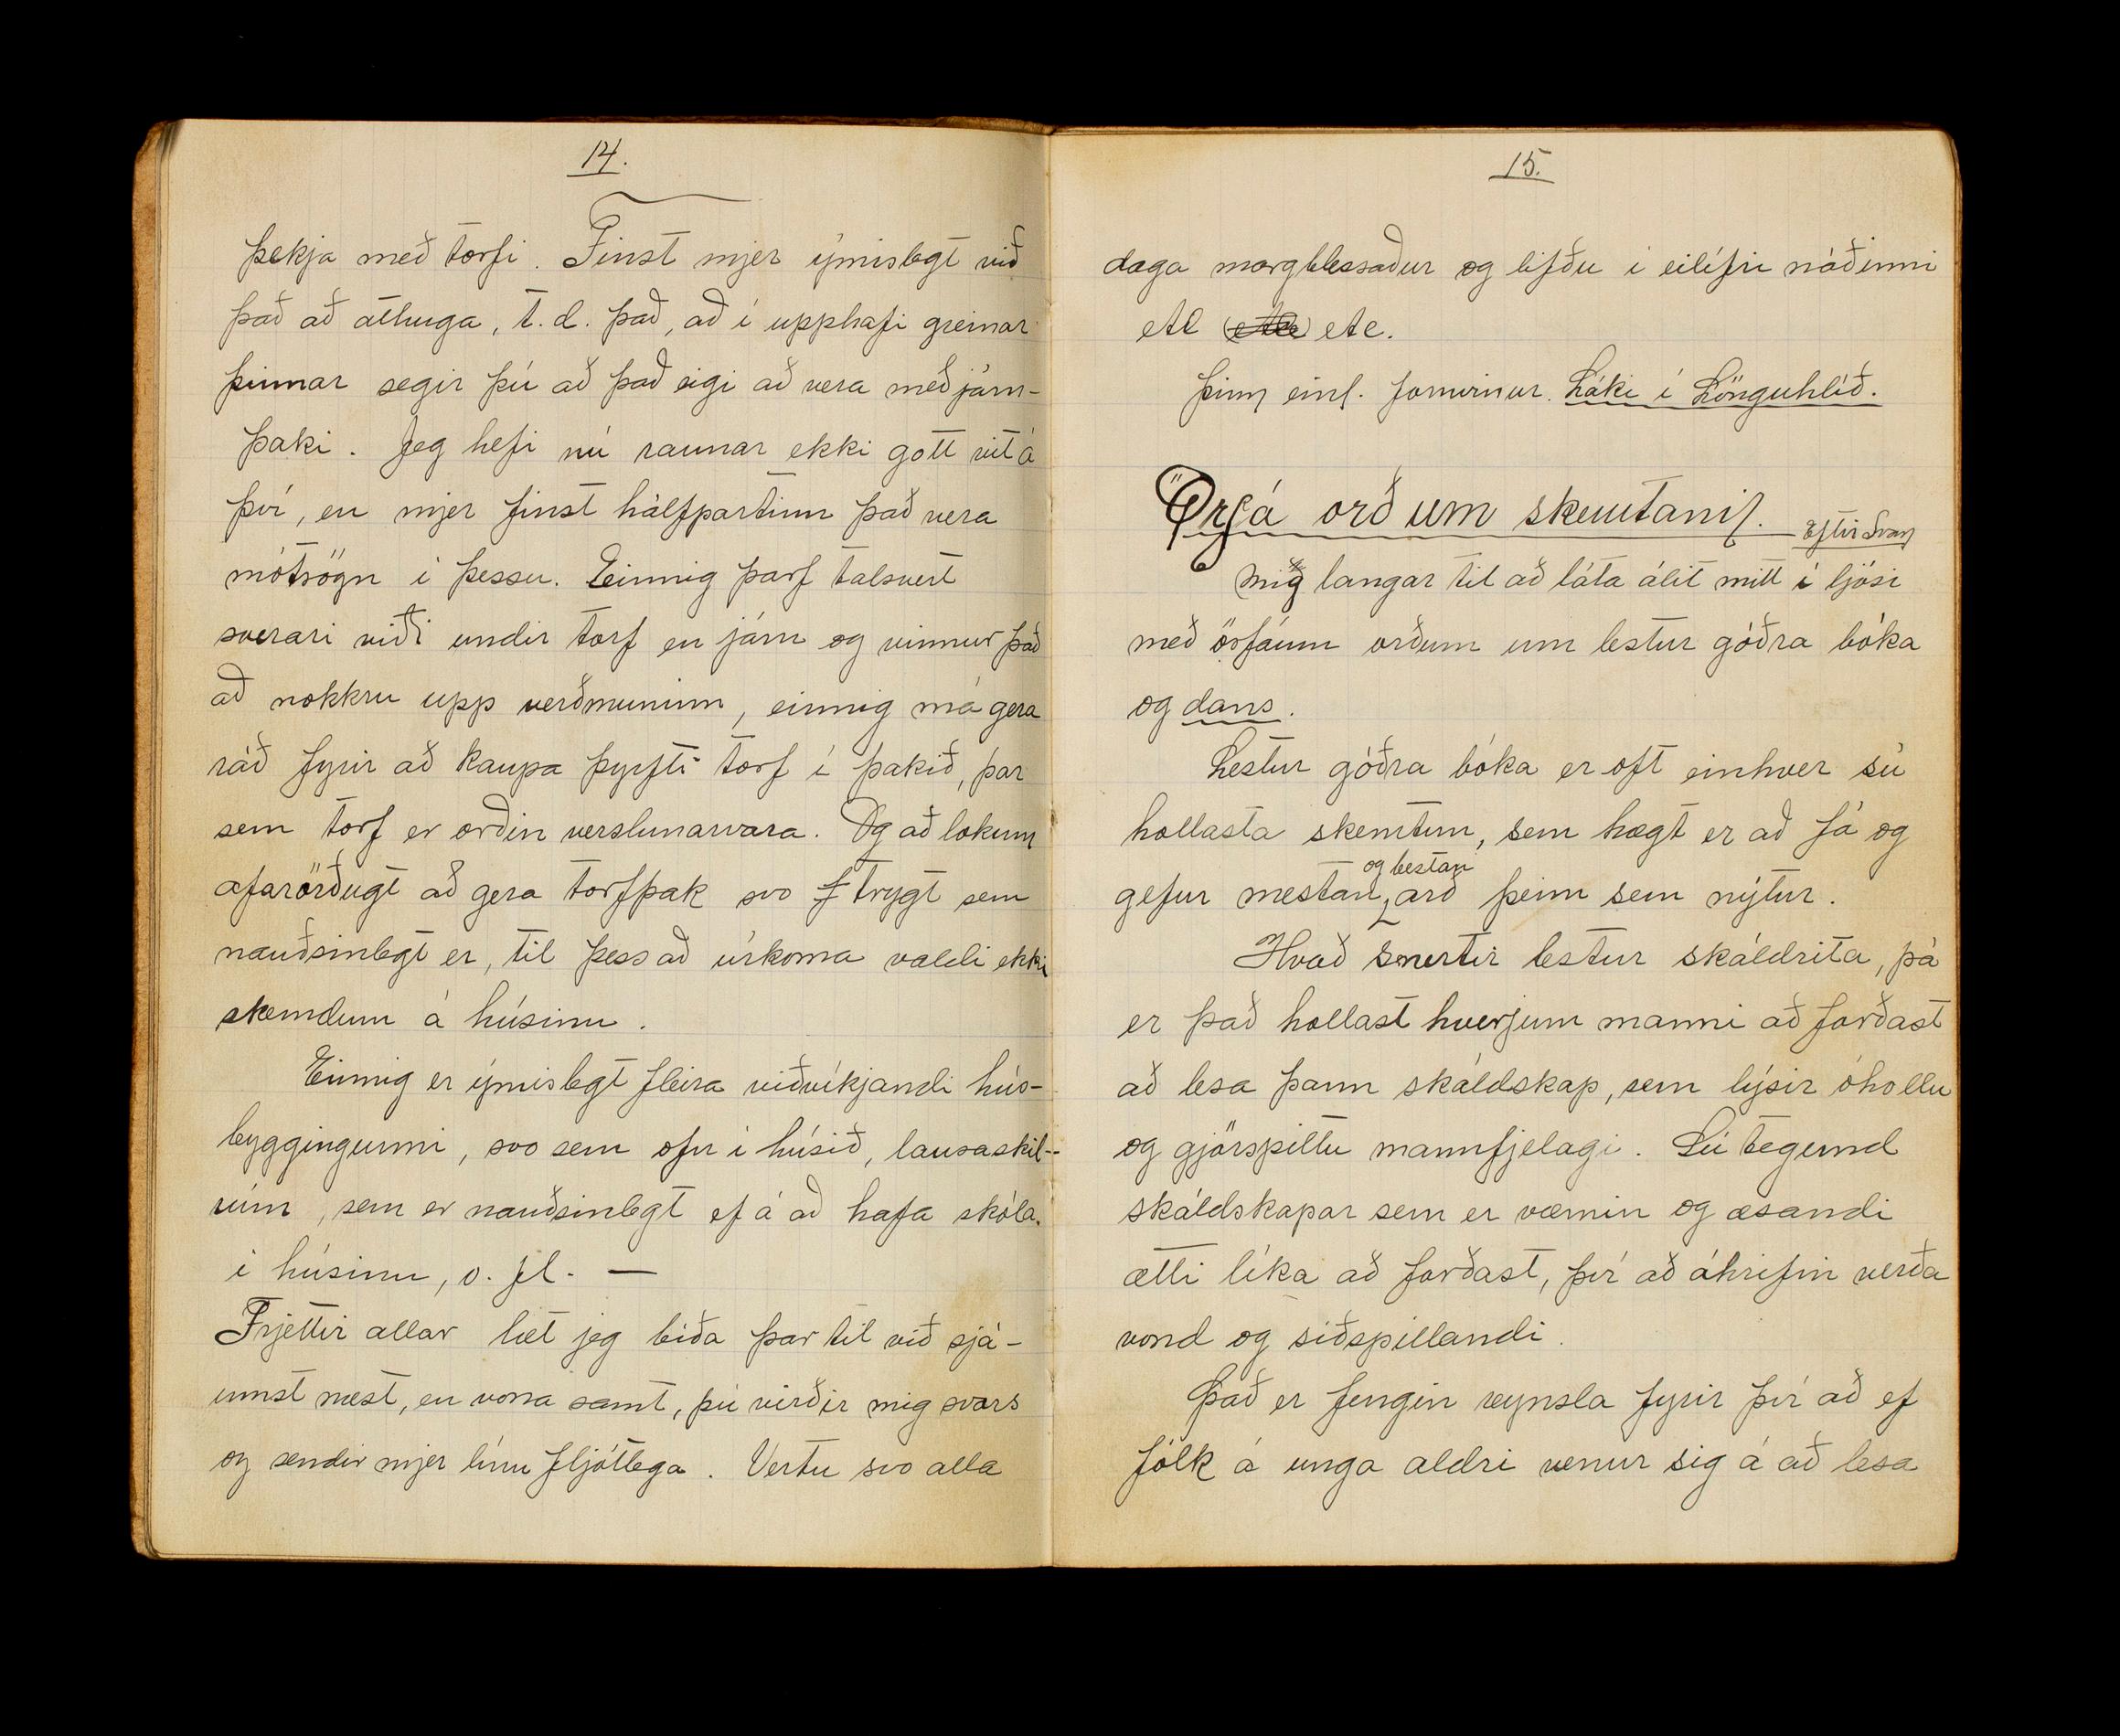 14.
þekja með torfi. Finst mjer ýmislegt við
það að athuga, t.d. það, að í upphafi greinar
þinnar segir þú að það eigi að vera með járn-
þaki. Jeg hefi nú raunar ekki gott vit á
því, en mjer finst hálfpartinn það vera
mótsögn í þessu. Einnig þarf talsvert
sverari viði undir torf en járn og vinnur það
að nokkru upp verðmuninn, einnig má gera
ráð fyrir að kaupa þyrfti torf í þakið, þar
sem torf er orðin verslunarvara. Og að lokum
afarörðugt að gera torfþak svo f trygt sem
nauðsinlegt er, til þess að úrkoma valdi ekki
skemdum á húsinu.
Einnig er ýmislegt fleira viðvíkjandi hús-
byggingunni, svo sem ofn í húsið, lausaskil-
rúm, sem er nauðsinlegt ef á að hafa skóla
í húsinu, o. fl. —
Frjettir allar læt jeg bíða þar til við sjá-
umst næst, en vona samt, þú virðir mig svars
og sendir mjer línu fljótlega. Vertu svo alla
15.
daga margblessaður og lifðu í eilífri náðinni
etc etc.
þinn einl. fornvinur. Láki í Lönguhlíð.
Örfá orð um skemtanir. Eftir Svan
Mig langar til að láta álit mitt í ljósi
með örfáum orðum um lestur góðra bóka
og dans.
Lestur góðra bóka er oft einhver sú
hollasta skemtun, sem hægt er að fá og
gefur mestan og bestan arð þeim sem nýtur.
Hvað snertir lestur skáldrita, þá
er það hollast hverjum manni að forðast
að lesa þann skáldskap, sem lýsir óhollu
og gjörspiltu mannfjelagi. Sú tegund
skáldskapar sem er væmin og æsandi
ætti líka að forðast, því að áhrifin verða
vond og siðspillandi.
Það er fengin reynsla fyrir því að ef
fólk á unga aldri venur sig á að lesa